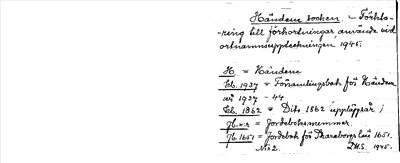 Händene socken. - Förkla-
-ring till förkortningar, använda vid
ortnamnsuppteckningen, 1945.
H. = Händene
Lb. 1937 = Församlingsbok för Händene
av 1937 - 44
Lb. 1862 = Dito 1862 (upplöpsår)
Jb.n:r = Jordeboksnummer.
Jb. 1651 = Jordebok för Skaraborgs län 1651.
N:o 2. 1945.